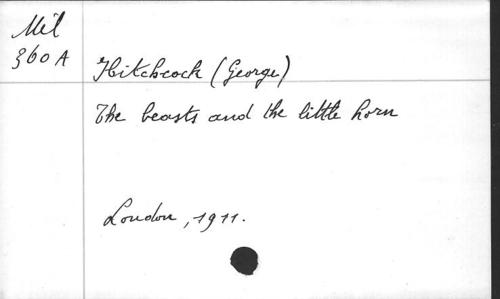 Mil
360 A
Hitchcock (George)
The beasts and the little horn
London, 1911.